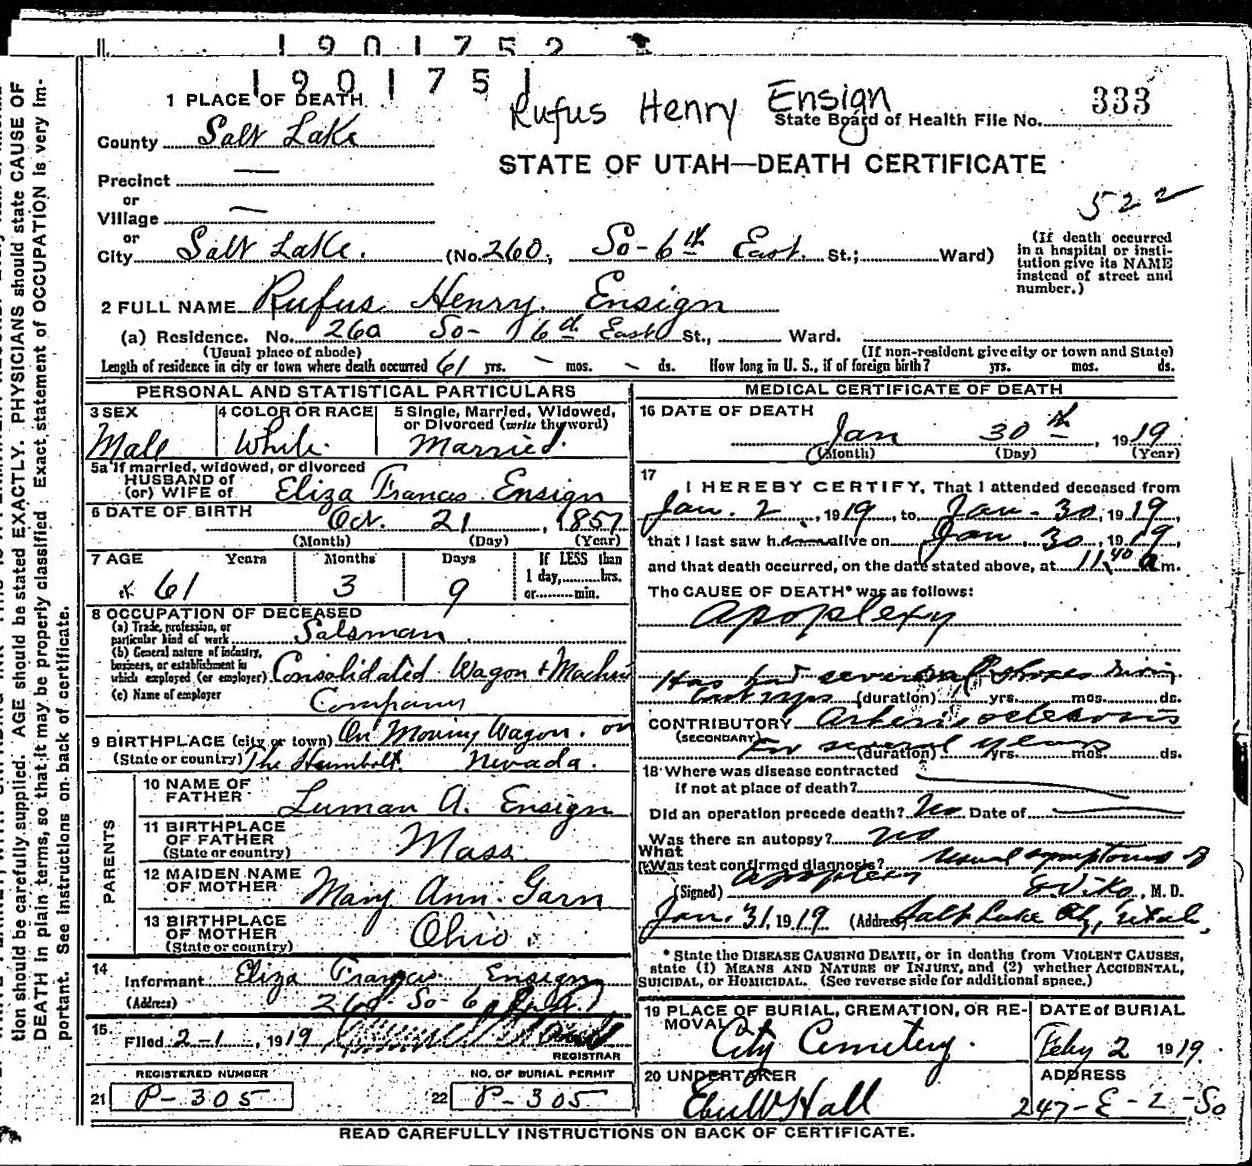 1901752
1901751
Rufus Henry Ensign
State Board of Health File No. 333
1 PLACE OF DEATH
County Salt Lake
STATE OF UTAH—DEATH CERTIFICATE
Precinct —
or
Village —
522
or
City Salt Lake. (No. 260, So-6th East. St.; Ward)
(If death occurred in a hospital or insti-
tution give its NAME instead of street and number.)
2 FULL NAME Rufus Henry Ensign
(a) Residence. No. 260 So- 6th East St., Ward.
(Usual place of abode) (If non-resident give city or town and State)
Length of residence in city or town where death occurred 61 yrs. - mos. - ds. How long in U. S., if of foreign birth? yrs. mos. ds.
PERSONAL AND STATISTICAL PARTICULARS
3 SEX 4 COLOR OR RACE 5 Single, Married, Widowed, or Divorced (write the word)
Male White Married.
5a If married, widowed, or divorced
HUSBAND of
(or) WIFE of Eliza Francis Ensign
6 DATE OF BIRTH Oct. 21, 1857
(Month) (Day) (Year)
7 AGE Years Months Days If LESS than
1 day, hrs.
or min.
61 3 9
8 OCCUPATION OF DECEASED
(a) Trade, profession, or
particular kind of work Salsman
(b) General nature of industry,
business, or establishment in
which employed (or employer) Consolidated Wagon + Machine
(c) Name of employer Company
9 BIRTHPLACE (city or town) On Moving Wagon. on
(State or country) The Humbolt. Nevada.
PARENTS
10 NAME OF FATHER Luman A. Ensign
11 BIRTHPLACE OF FATHER (State or country) Mass.
12 MAIDEN NAME OF MOTHER Mary Ann Garn
13 BIRTHPLACE OF MOTHER (State or country) Ohio.
14
Informant Eliza Francis Ensign
(Address) 260 So- 6
15
Filed 2-1, 1919
REGISTRAR
REGISTERED NUMBER NO. OF BURIAL PERMIT
21 P-305 22 P-305
MEDICAL CERTIFICATE OF DEATH
16 DATE OF DEATH
Jan 30th, 1919
(Month) (Day) (Year)
17
I HEREBY CERTIFY, That I attended deceased from
Jan. 2, 1919, to Jan. 30, 1919,
that I last saw h alive on Jan. 30, 1919,
and that death occurred, on the date stated above, at 11:40 a m.
The CAUSE OF DEATH* was as follows:
apoplexy
Has had several strokes during
(duration) yrs. mos. ds.
CONTRIBUTORY Arteriosclerosis
(SECONDARY) For several years (duration) yrs. mos. ds.
18 Where was disease contracted
if not at place of death?
Did an operation precede death? No Date of
Was there an autopsy? no
What
Was test confirmed diagnosis? usual symptoms of
apoplexy
(Signed) , M. D.
Jan. 31, 1919 (Address) Salt Lake City, Utah.
* State the DISEASE CAUSING DEATH, or in deaths from VIOLENT CAUSES,
state (1) MEANS AND NATURE OF INJURY, and (2) whether ACCIDENTAL,
SUICIDAL, or HOMICIDAL. (See reverse side for additional space.)
19 PLACE OF BURIAL, CREMATION, OR RE-
MOVAL DATE of BURIAL
City Cemetery. Feby 2 1919.
20 UNDERTAKER ADDRESS
Eber W Hall 247-E-2-So
READ CAREFULLY INSTRUCTIONS ON BACK OF CERTIFICATE.
tion should be carefully supplied. AGE should be stated EXACTLY. PHYSICIANS should state CAUSE OF
DEATH in plain terms, so that it may be properly classified. Exact statement of OCCUPATION is very im-
portant. See instructions on back of certificate.